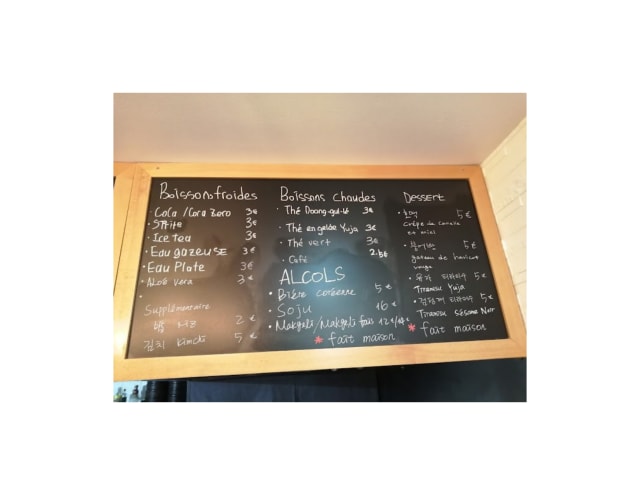 Boissons froides
· Coca / Cora zero 3€
· Sprite 3€
· Ice tea 3€
· Eau gazeuse 3€
· Eau Plate 3€
· Aloe vera 3€
Supplémentaire
밥 riz 2€
김치 Kimchi 5€
Boissons chaudes
· Thé Doong-gul-le 3€
· Thé en gelée Yuja 3€
· Thé vert 3€
· Café
ALCOLS
· Bière coréenne 5€
· Soju 16€
· Makgeoli/Makgeoli frais 12€/
* fait maison
Dessert
· 호떡 5€
Crêpe de canelle
et miel
· 붕어빵 5€
gateau de haricot
rouge
· 유자 티라미수 5€
Tiramisu Yuja
· 검정깨 티라미수 5€
Tiramisu sésame Noir
* fait maison